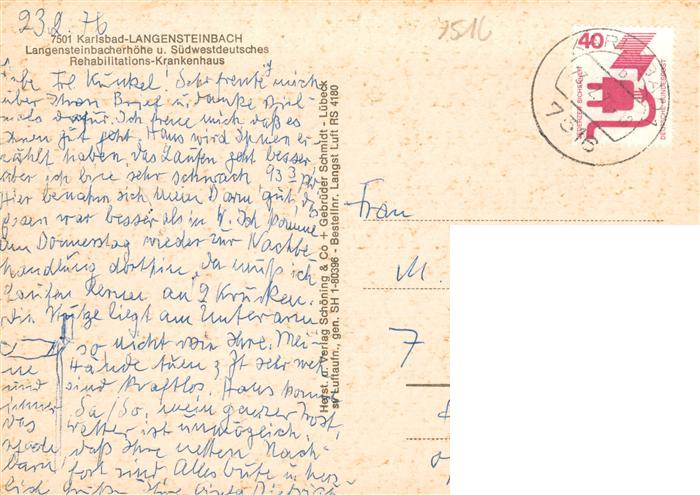 23.2.76
7516
7501 Karlsbad-LANGENSTEINBACH
Langensteinbacherhöhe u. Südwestdeutsches
Rehabilitations-Krankenhaus
Frl. Kunkel! Sehr freute mich
über Ihren Brief u. danke viel-
mals dafür. Ich freue mich daß es
Ihnen gut geht. Hans wird Ihnen er-
zählt haben, das Laufen geht besser
aber ich bin sehr schwach 93
Hier benahm sich mein Darm gut, das
Essen war besser als in
am Donnerstag wieder zur Nachbe-
handlung dorthin. Da muß ich
Laufen lernen an 2 Krücken.
die Stütze liegt am Unterarm
so nicht von Ihre. Mei-
ne Hände tuen
und sind kraftlos. Hans
immer Sa/So, mein ganzer Trost,
das Wetter ist unmöglich.
daß Ihre netten Nach-
barn fort sind Alles Gute u. herz-
lich
Horst. u. Verlag Schöning & Co + Gebrüder Schmidt - Lübeck
sw Luftaufn., gen. SH 1-80396 - Bestellnr. Langst Luft RS 4180
40
JEDERZEIT SICHERHEIT
DEUTSCHE BUNDESPOST
7516
Frau
M.
7